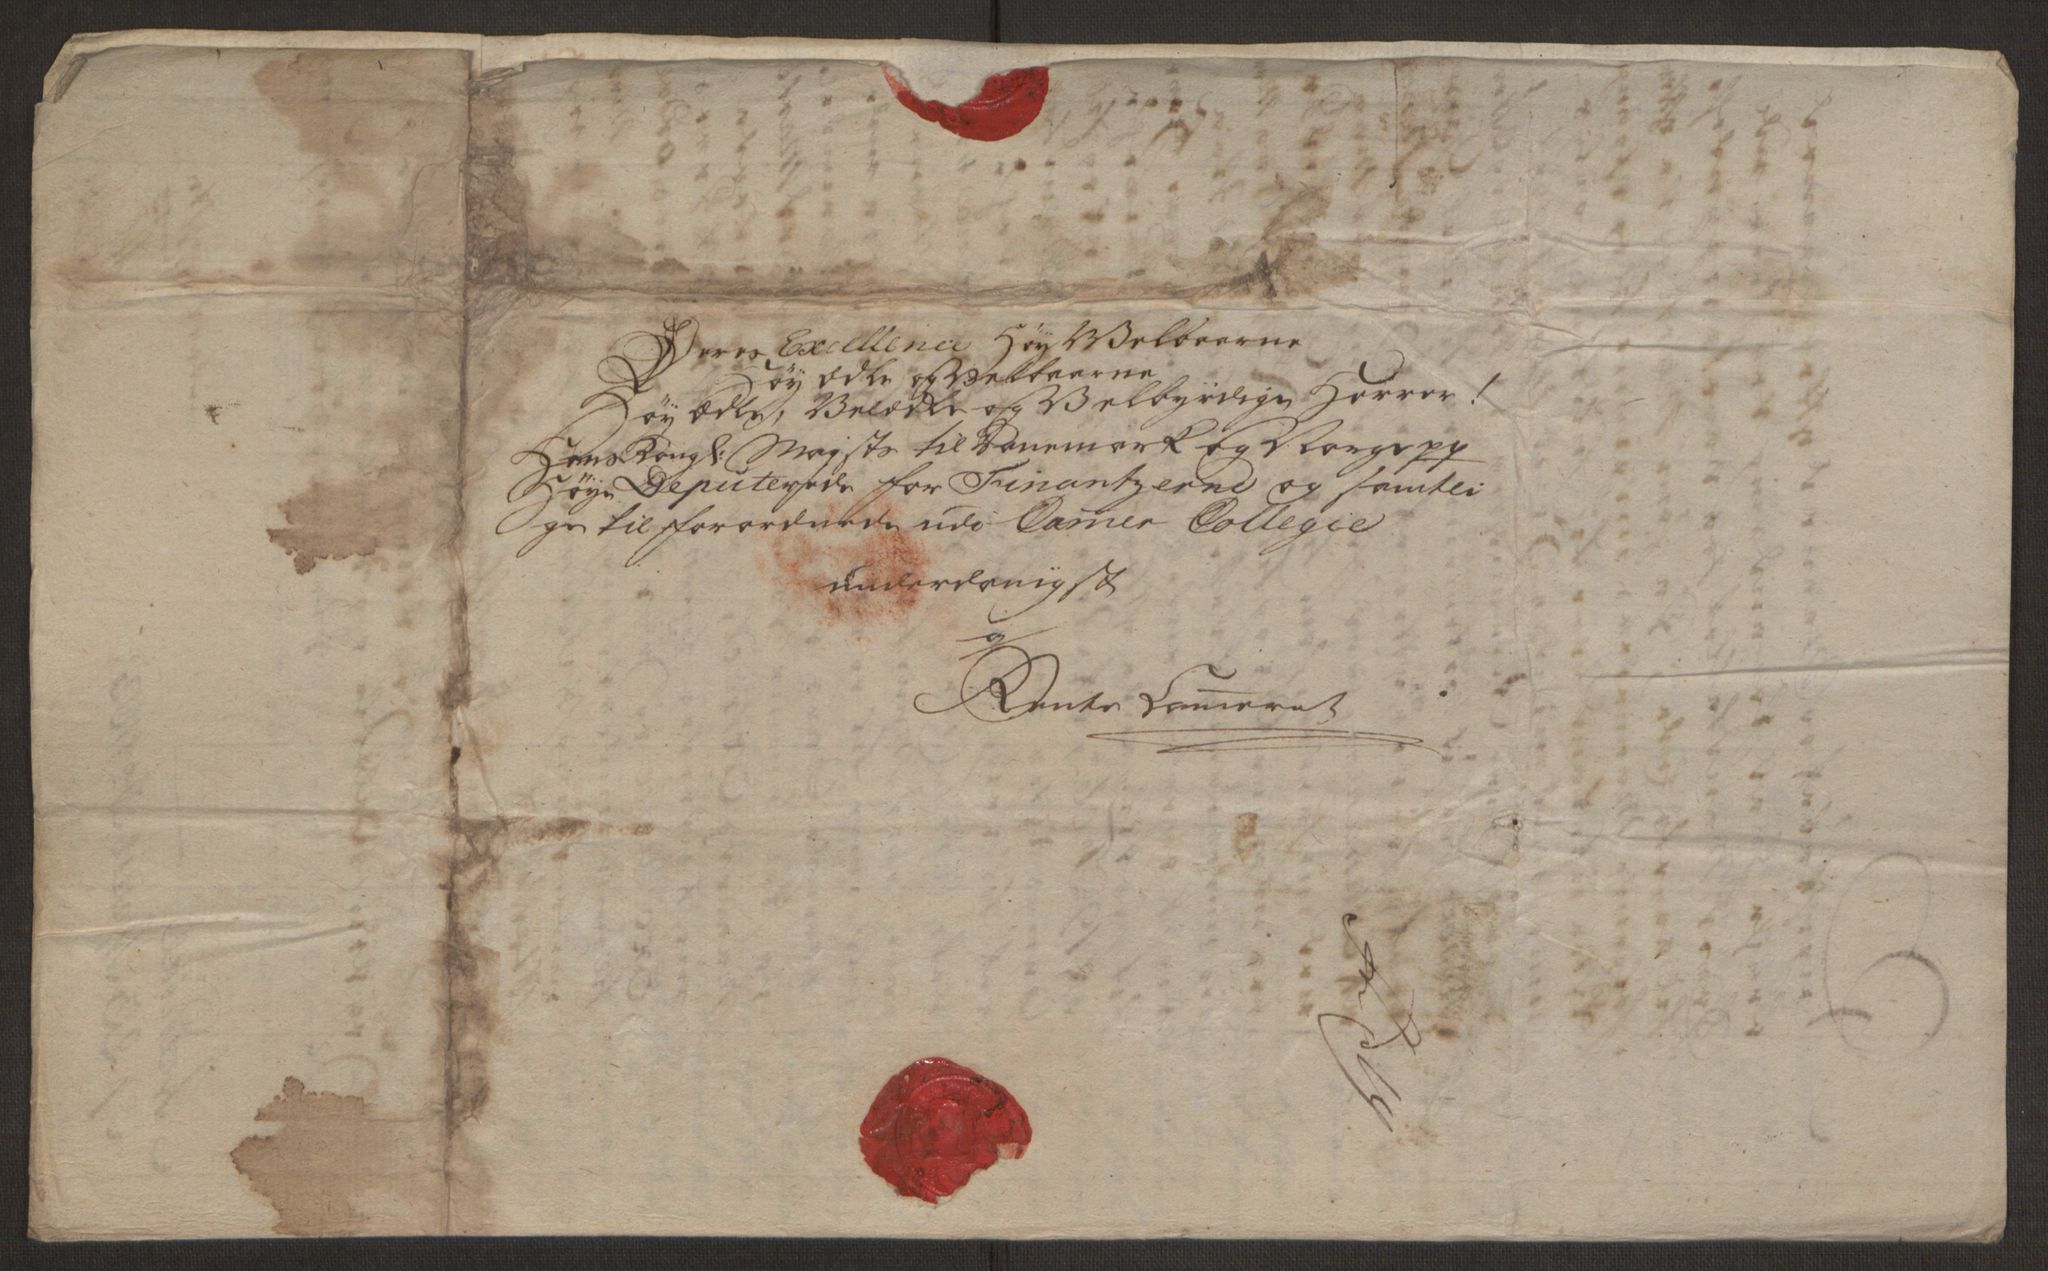 Deres Exellence Høy Welbaarne
Høy ædle og Velbaarne
Høy ædle, Velædle og Velbyrdige Herrer!
Hans Kongl: Mayts til Danemark og Norge pp
Høye Deputerede for Finantzerne og samtli
ge til forordnede udi Camer Collegie
underdanigst
Rente Cammeret